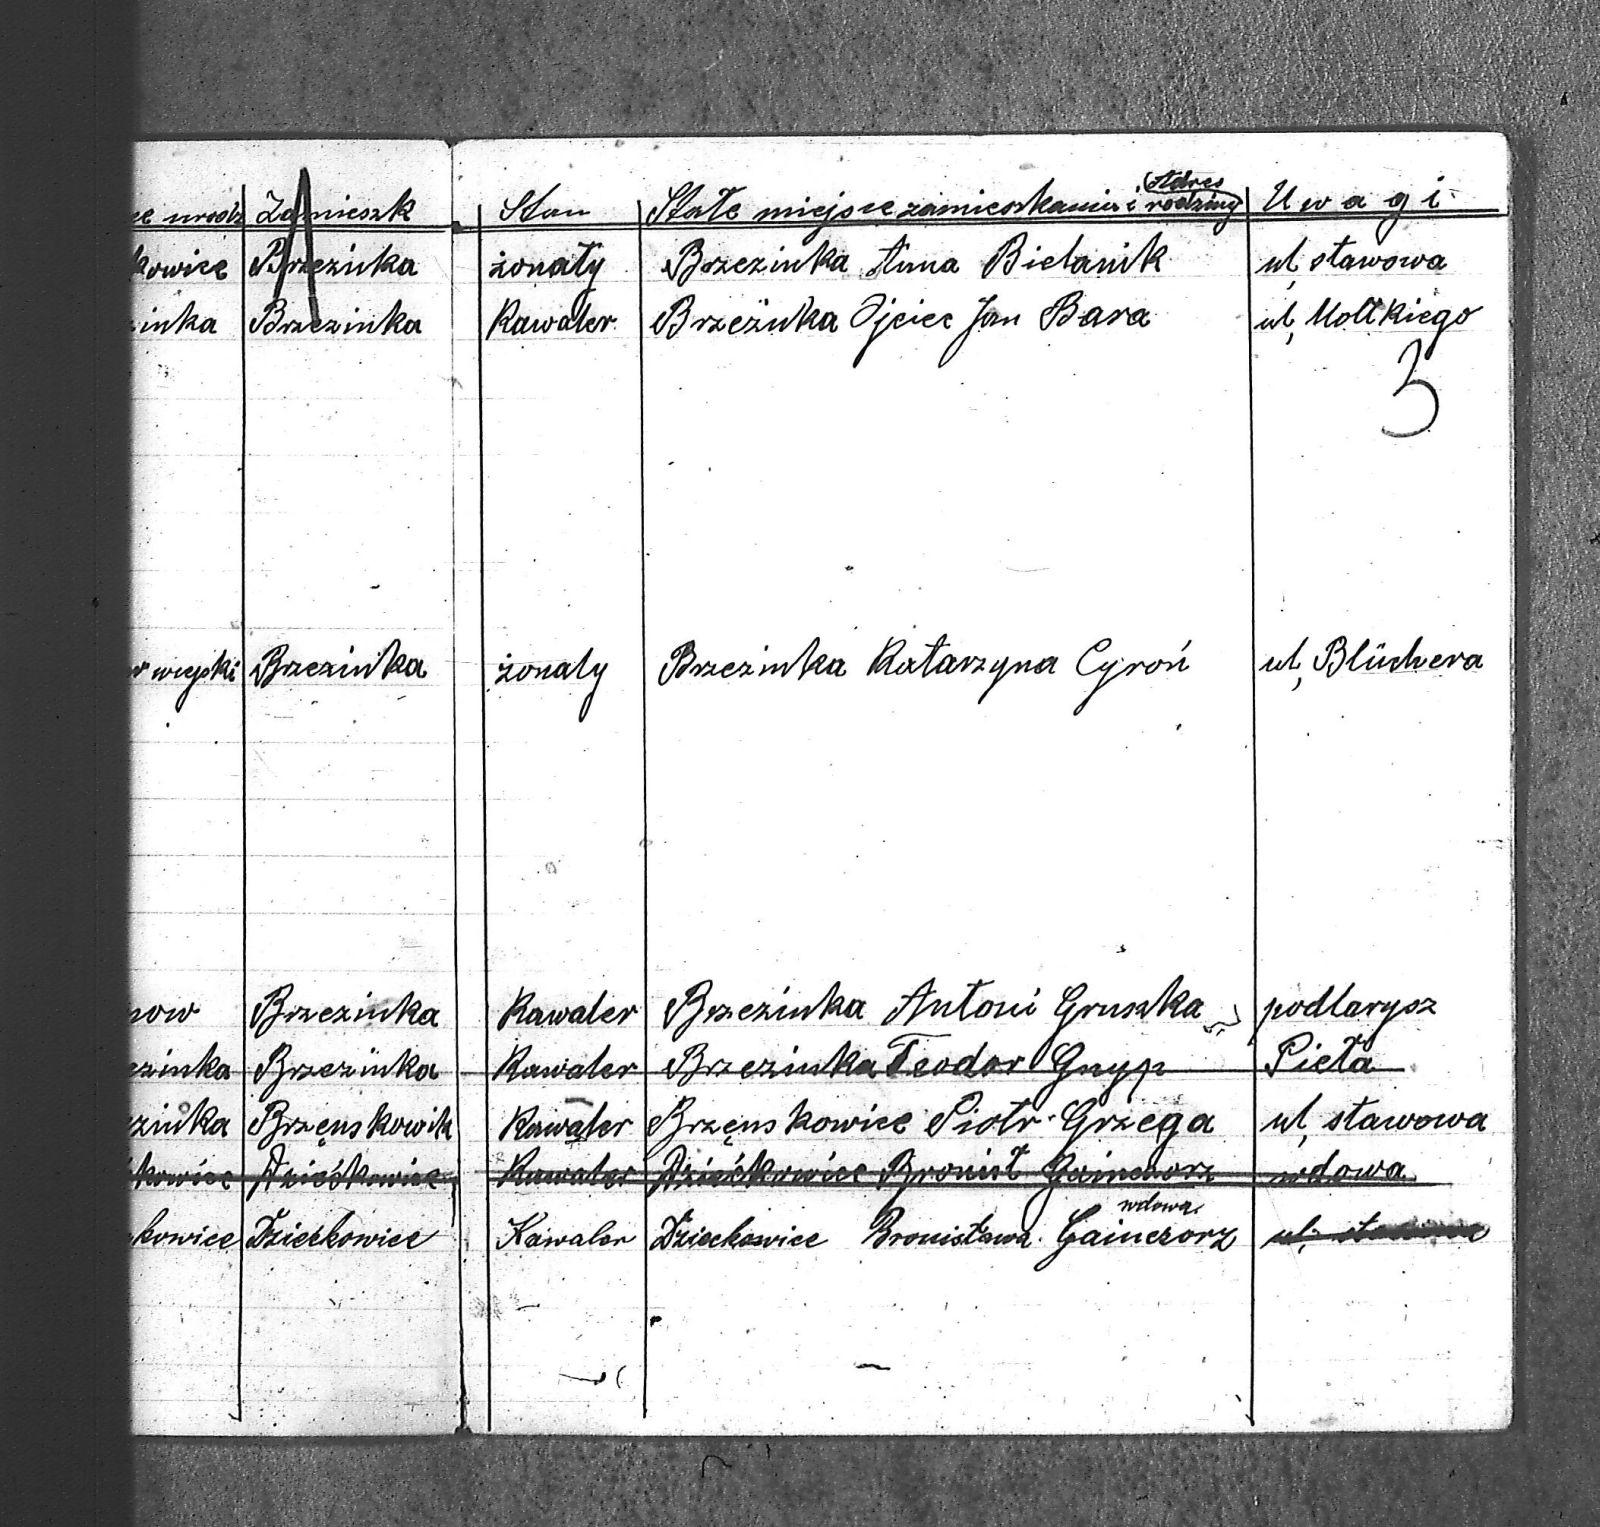 ce urodz Zamieszk Stan Stałe miejsce zamieszkania i Adres rodziny Uwagi
kowice Brzezinka żonaty Brzezinka Anna Bielanik ul, stawowa
inka Brzezinka Kawaler Brzezinka Ojciec Jan Bara ul, Moltkiego
3
wiejski Brzezinka żonaty Brzezinka Katarzyna Cyroń ul, Blüchera
now Brzezinka Kawaler Brzezinka Antoni Gruszka podlarysz
ezinka Brzezinka Kawaler Brzezinka Teodor Gnyp Pieta
zinka Brzęnskowik Kawaler Brzęnskowice Piotr Grzega ul, stawowa
kowice Dziećkowice Kawaler Dziećkowice Bronisł Gainczorz wdowa
wdowa
kowice Dziećkowice Kawaler Dzieckowice Bronisława Gainczorz ul,